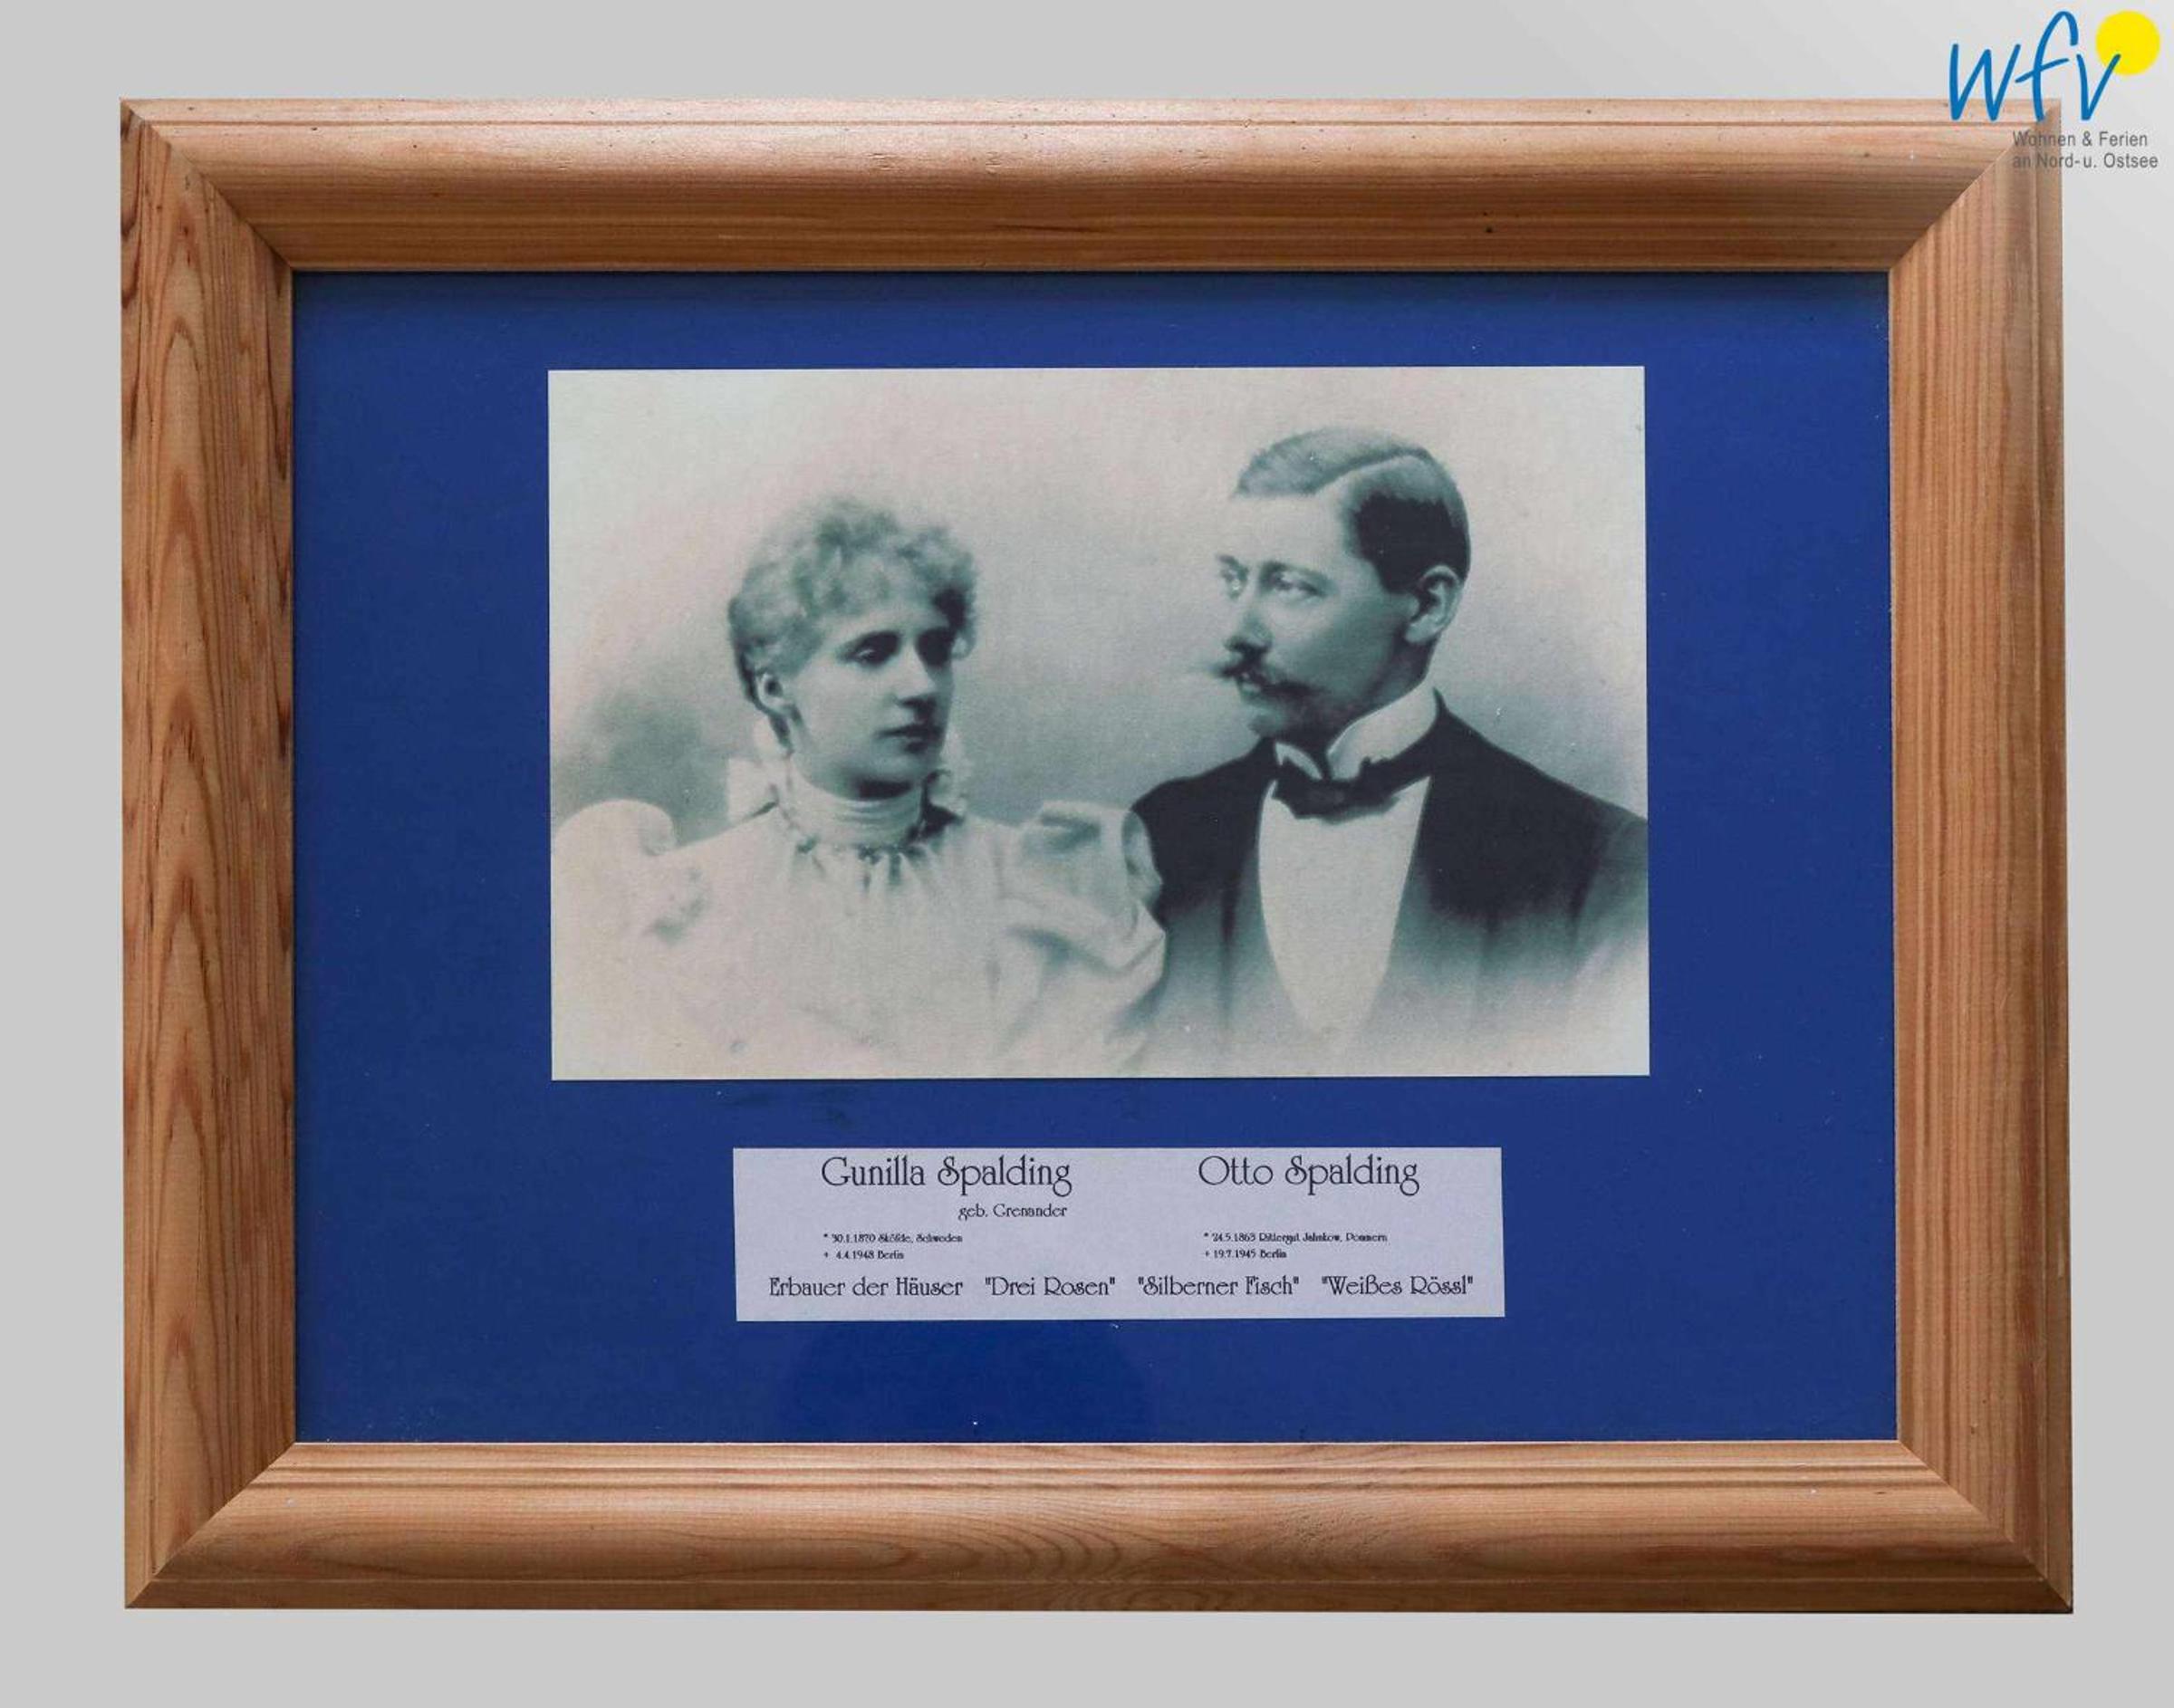 wfv
Wohnen & Ferien
an Nord- u. Ostsee
Gunilla Spalding
geb. Grenander
* 30.1.1870 Skölde, Schweden
+ 4.4.1948 Berlin
Otto Spalding
* 24.5.1863 Rittergut Jahnkow, Pommern
+ 19.7.1945 Berlin
Erbauer der Häuser "Drei Rosen" "Silberner Fisch" "Weißes Rössl"